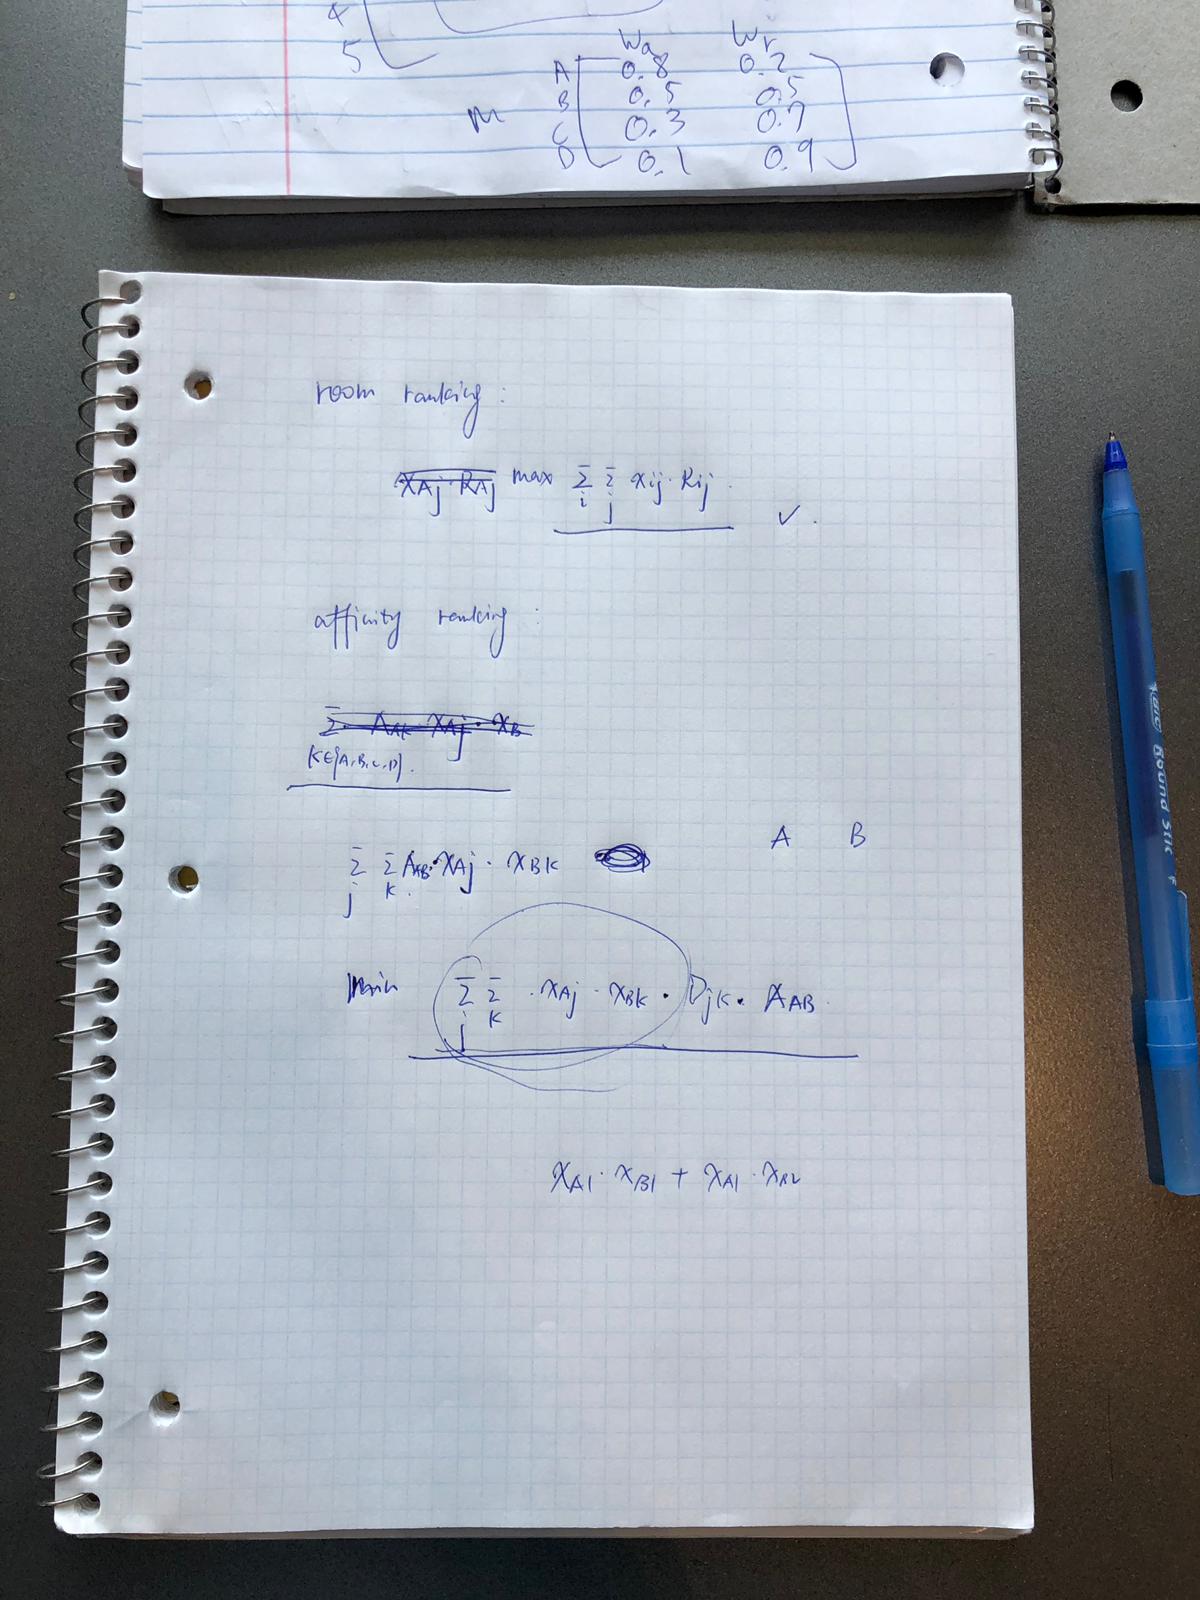 4
5
Wa Wr
A 0.8 0.2
B 0.5 0.5
M C 0.3 0.7
D 0.1 0.9
room ranking:
XAj · RAj max Σi Σj xij · Rij. ✓.
affinity ranking:
Σ · AAk · XAj · XB
K∈{A,B,C,D}.
A B
Σj Σk. AAB · XAj · XBK
Min Σj Σk · XAj · XBK · DjK · AAB.
XA1 · XB1 + XA1 · XB2
BIC Round Stic